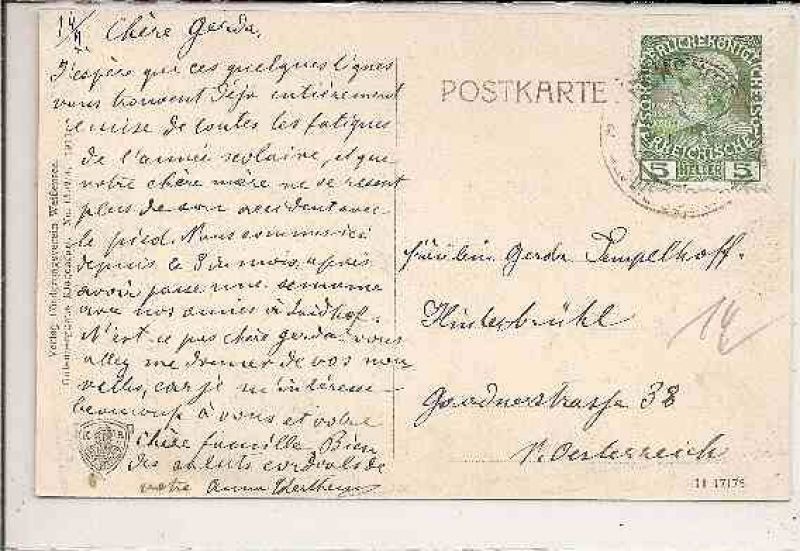 Chère Gerda.
J'espère que ces quelques lignes
vous trouvent déjà entièrement
remise de toutes les fatigues
de l'année scolaire, et que
votre chère mère ne se resent
plus de son accident avec
le pied. Nous sommes ici
depuis le 8 du mois, après
avoir passé une semaine
avec nos amies à
N'est ce pas chère gerda vous
allez me donner de vos nou
velles, car je m'intéresse
beaucoup à vous et votre
Chère famille Bien
des saluts cordials de
votre Anna
Verlag: Förderungsverein Weißensee.
POSTKARTE
5 HELLER 5
Fräulein Gerda Tempelhoff.
Hinterbrühl
Gaadnerstrasse 38
N. Oesterreich
14
11 17175